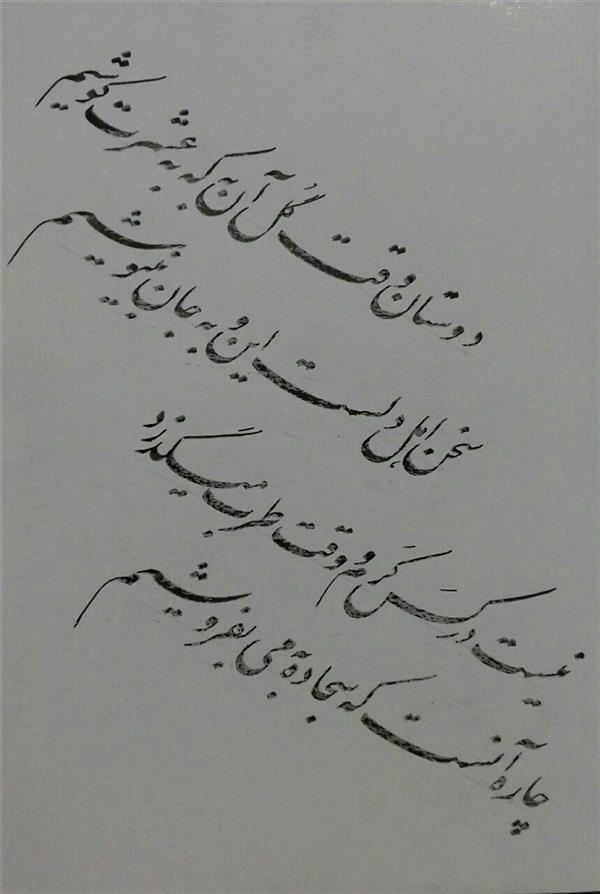 دوستان وقت گل آن به که به عشرت کوشیم
سخن اهل دلست این و به جان بنیوشیم
نیست در کس کَرَم و وقت طرب میگذرد
چاره آنست که سجاده به می بفروشیم